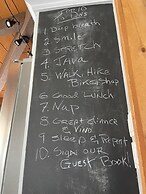 TO DO
1. Deep breath
2. Smile
3. STRETCH
4. JAVA
5. WALK, HIKE
6. Good Lunch
7. Nap
8. Great dinner
& Vino
9. Sleep & Repeat
10. Sign our
Guest Book!